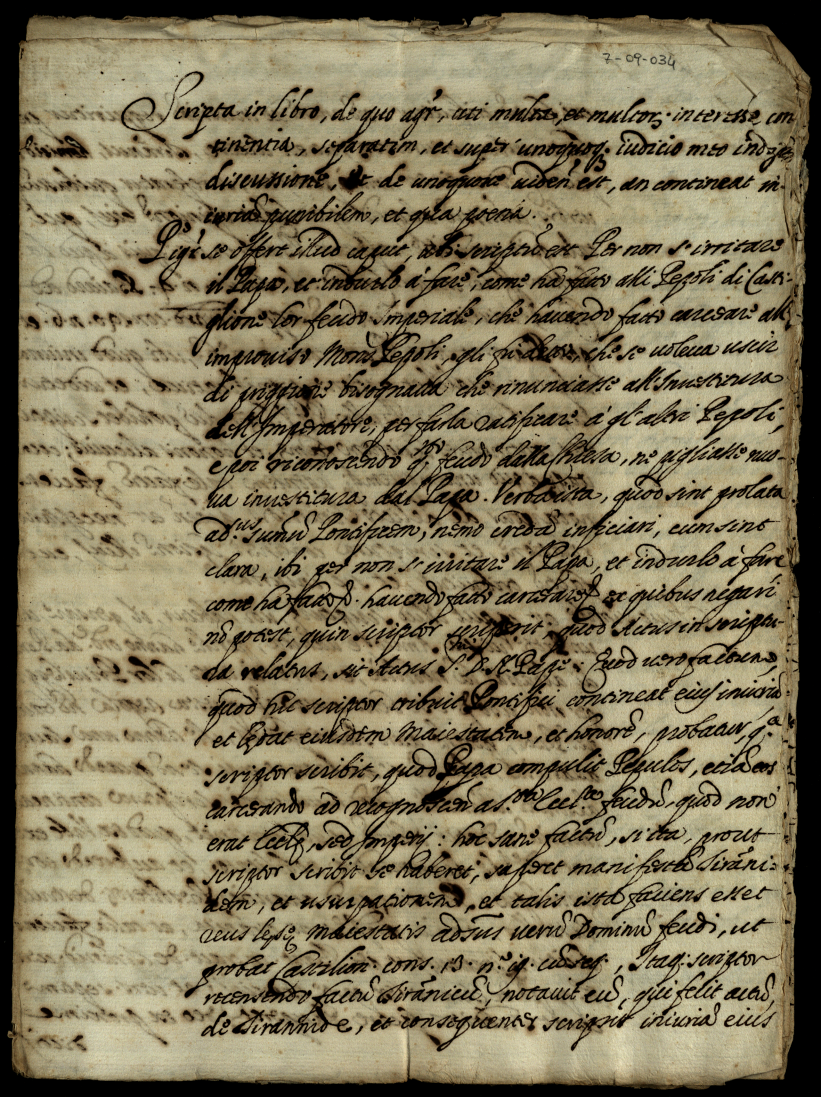 7-09-034
Scripta in libro, de quo agr, uti multa, et multor, interesse, con
tinentia, separatim, et super unoquoq. iudicio meo indige,
discussione, et de unoquoque viden est, an contineat in-
iuriã punibilem, et qua poena.
Pig.r se offert illud caput, ubi scriptũ est Per non s'irritare
il Papa, et indurlo à fare, come ha fatto alli Pepoli di Casti-
glione lor feudo Imperiale, che havendo fatto carcerare all
improviso Mons. Pepoli, gli fu detto, che se voleva uscir
di priggione bisognava che rinunciasse all'Investitura
dell'Imperatore, per farla ratificare à gl'altri Pepoli,
e poi riconoscendo q.to feudo dalla Chiesa, ne pigliasse nuo-
va investitura dal Papa. Verba ista, quod sint prolata
ad.sus sumũ Pontificem, nemo credã inficiari, cum sint
clara, ibi per non s'irritare il Papa, et indurlo à fare
come ha fatto havendo fatto carcerare ex quibus negari
nõ potest, quin scriptor scripserit, quod Actus in scriptu-
ra relatus, sit Actus S. D. N. Papę. Quod vero factum,
quod hic scriptor tribuit Pontifici contineat eius iniuriã
et lędat eiusdem Maiestatem, et honorẽ, probatur, q.a
scriptor scribit, quod Papa compulit Pepulos, etiã eos
carcerando ad recognoscen a S.ta Eccl.a feudũ, quod non
erat Ecclę, sed Imperij: hoc sane factũ, si ita, prout
scriptor scribit se haberet, saperet manifestã Tirãni-
dem, et usurpationem, et talis ista faciens esset
reus lęsę Maiestatis adsus verũ Dominũ feudi, ut
probat Castilion. cons. 13. n.o 19. cũ seq., Itaq. scriptor
recensendo factũ Tirãnicũ, notavit eũ, qui fecit actũ,
de Tirannide, et consequenter scripsit iniuriã eius